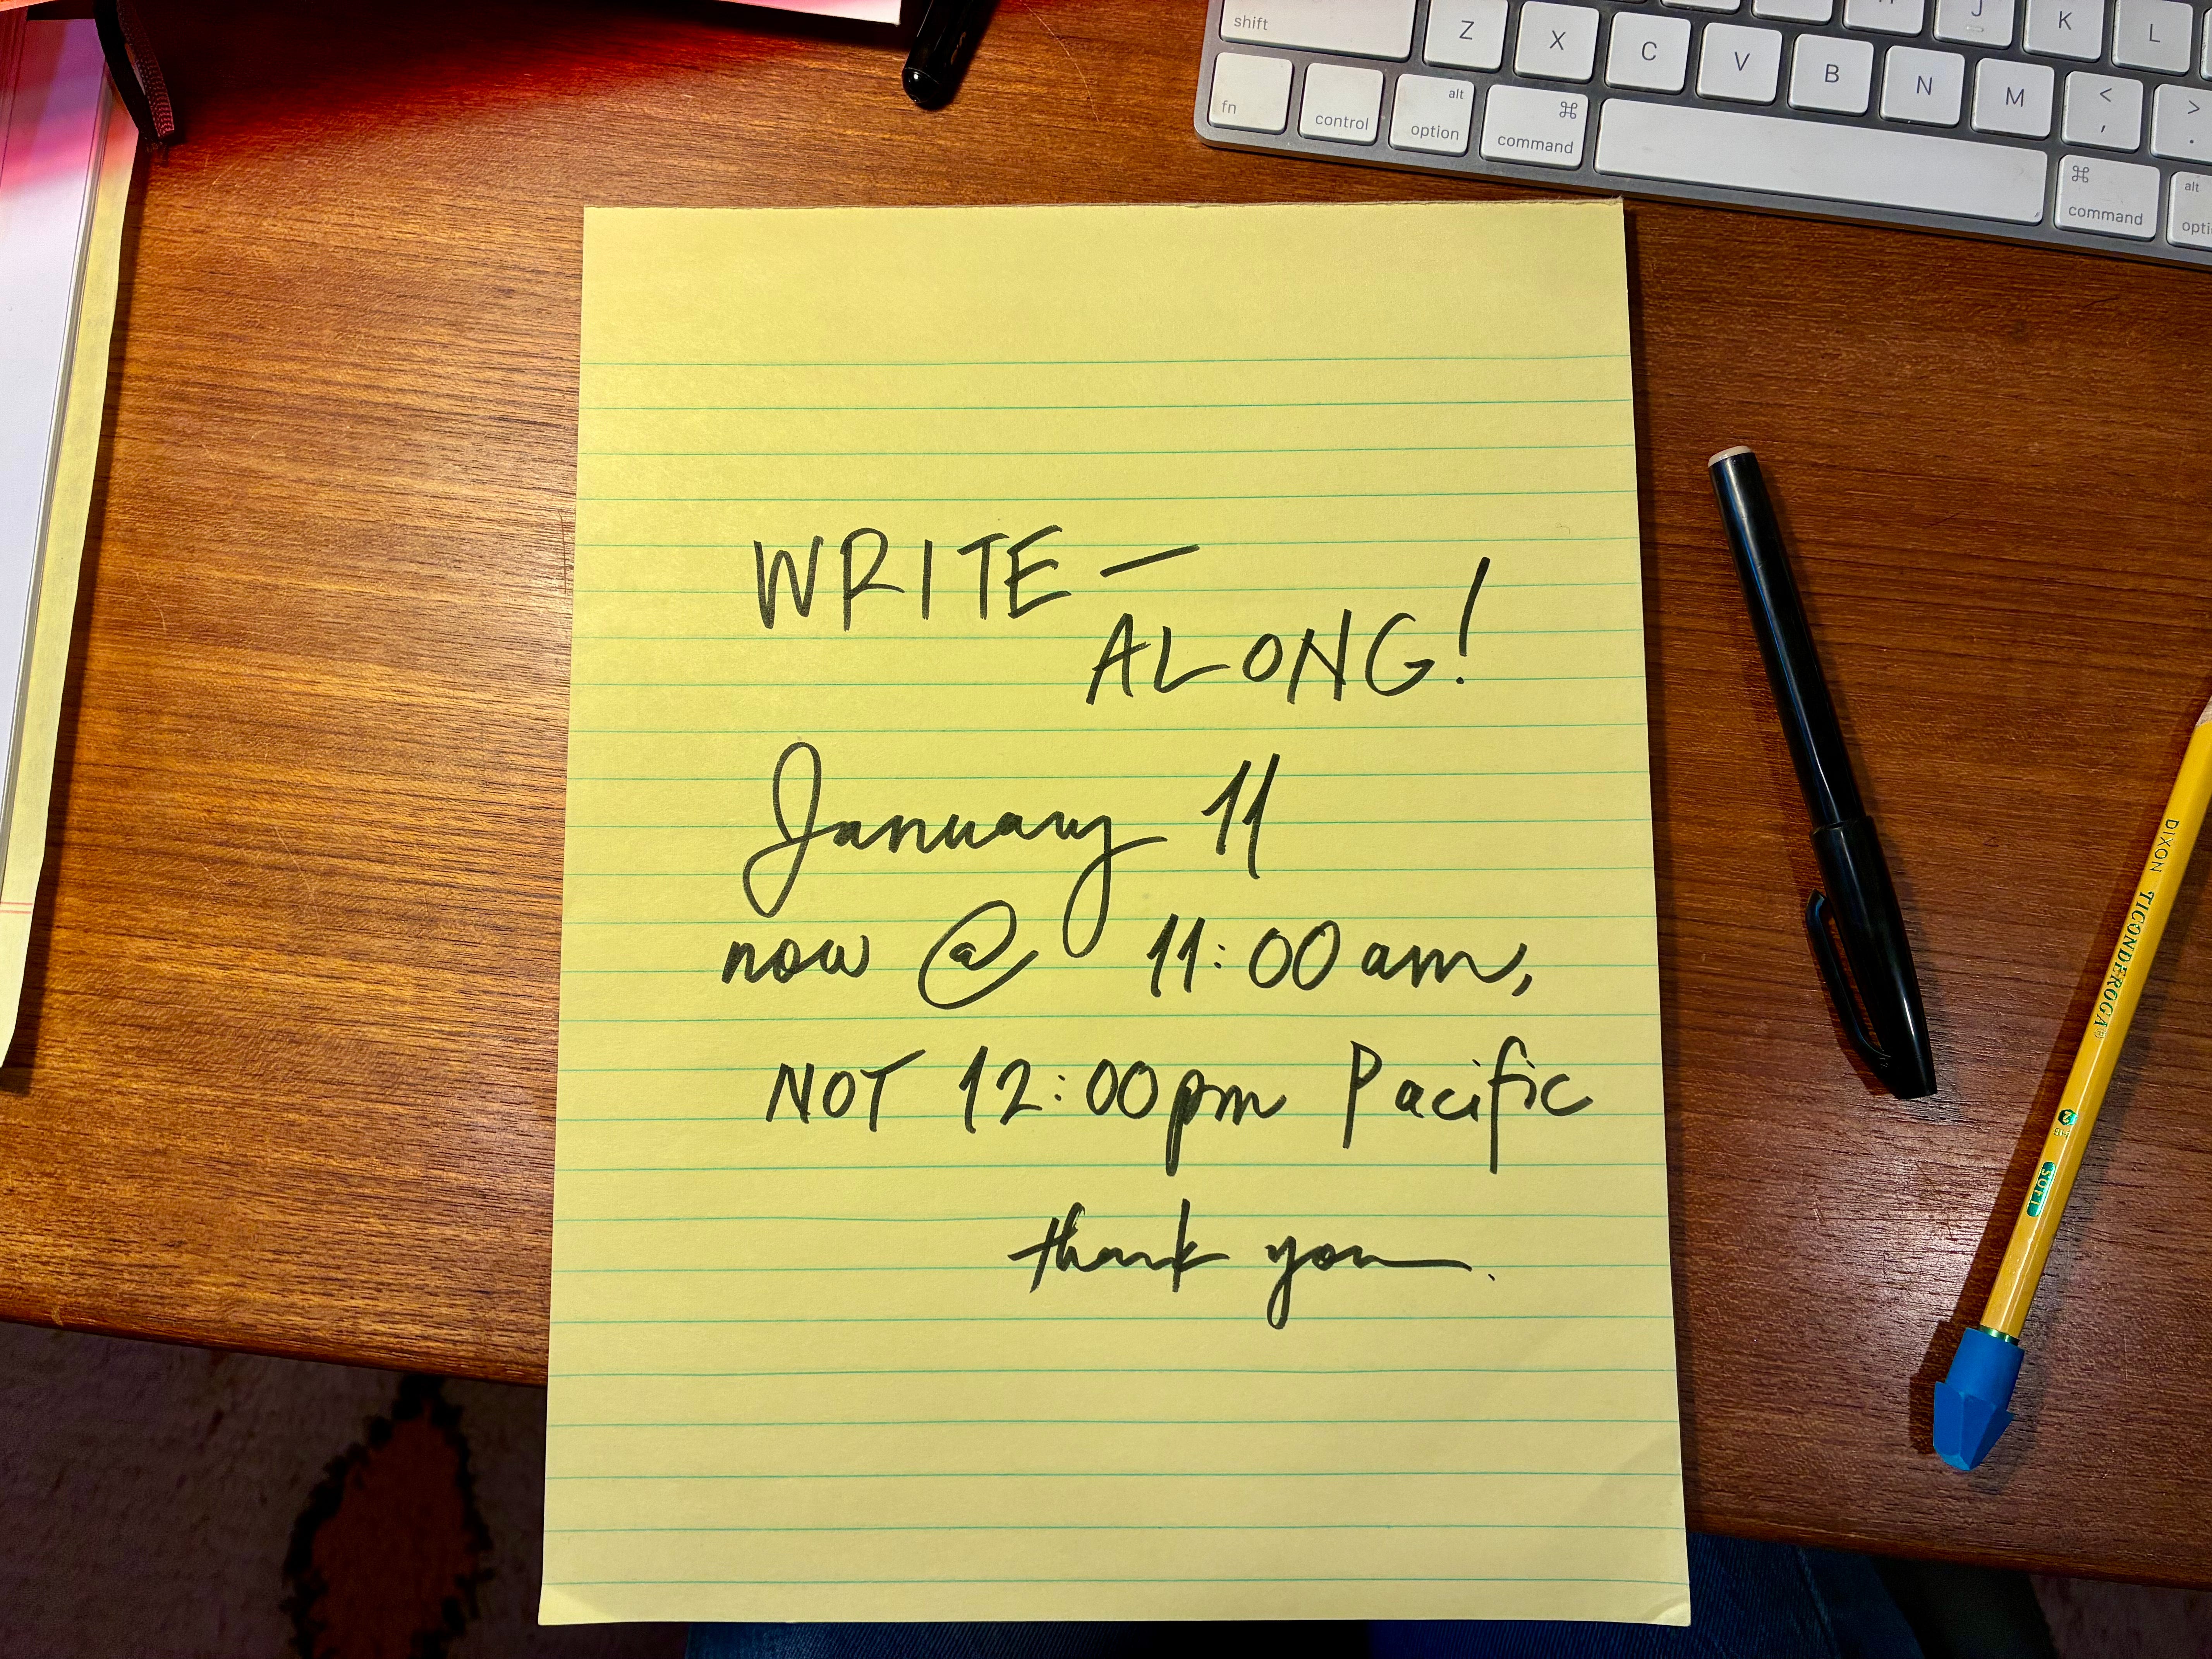 shift Z X C V B N M < , > .
J K L
fn control alt option ⌘ command ⌘ command alt opti
WRITE —
ALONG!
January 11
now @ 11:00 am,
NOT 12:00 pm Pacific
thank you.
DIXON TICONDEROGA® 2 SOFT